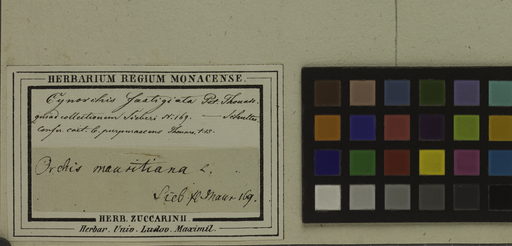 HERBARIUM REGIUM MONACENSE.
Cynorchis fastigiata Pet. Thouars.
quoad collectionem Sieberi N. 169. — Schultes
Confer. cart. C. purpurascens Thouars, t. 15.
Orchis mauritiana L.
Sieb fl. Maur 169.
HERB. ZUCCARINII
Herbar. Univ. Ludov. Maximil.